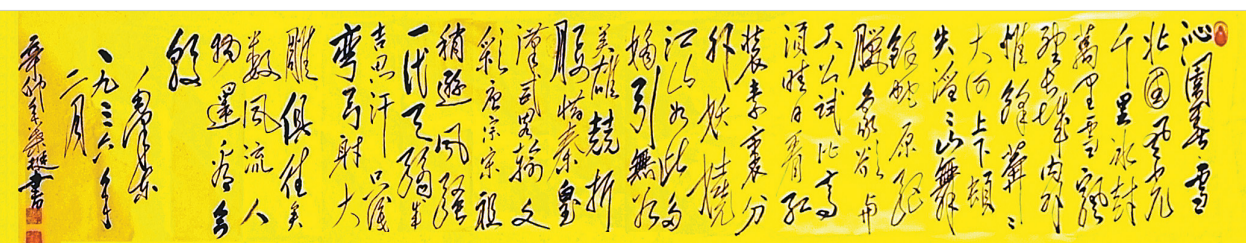 沁園春雪
北國風光
千里冰封
萬里雪飄
望長城内外
惟餘莽〻
大河上下頓
失滔〻山舞
銀蛇原馳
臘象欲與
天公試比高
須晴日看紅
裝素裹分
外妖嬈
江山如此多
嬌引無數
英雄競折
腰惜秦皇
漢武略輸文
彩唐宗宋祖
稍遜風騷
一代天驕成
吉思汗只識
彎弓射大
雕俱往矣
數風流人
物還看今
朝
毛澤東
一九三六年
二月
書